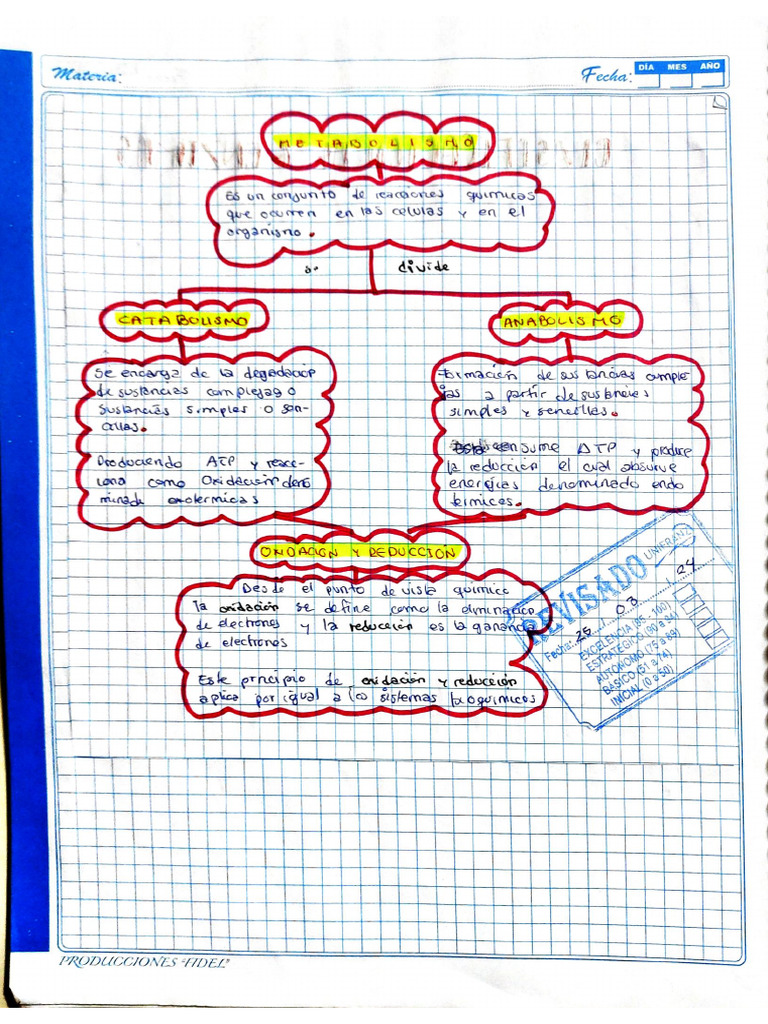 Materia:
Fecha:
DÍA MES AÑO
METABOLISMO
Es un conjunto de reacciones quimicas
que ocurren en las celulas y en el
organismo.
se divide
CATABOLISMO
ANABOLISMO
Se encarga de la degradacion
de sustancias complejas o
sustancias simples o sen-
cillas.
Produciendo ATP y reacc-
iona como Oxidación deno
minada exotermicas
Formación de sustancias comple
jas a partir de sustancias
simples y sencillas.
consume ATP y produce
la reducción el cual absurve
energías denominado endo
termicos.
OXIDACION Y REDUCCION
Desde el punto de vista quimico
la oxidación se define como la eliminación
de electrones y la reducción es la ganancia
de electrones
Este principio de oxidación y reducción
aplica por igual a los sistemas bioquimicos
REVISADO UNIFRANZ
Fecha: 25 / 03 / 24
EXCELENCIA (95 - 100)
ESTRATEGICO (90 a 94)
AUTONOMO (75 a 89)
BASICO (51 a 74)
INICIAL (0 a 50)
PRODUCCIONES "FIDEL"